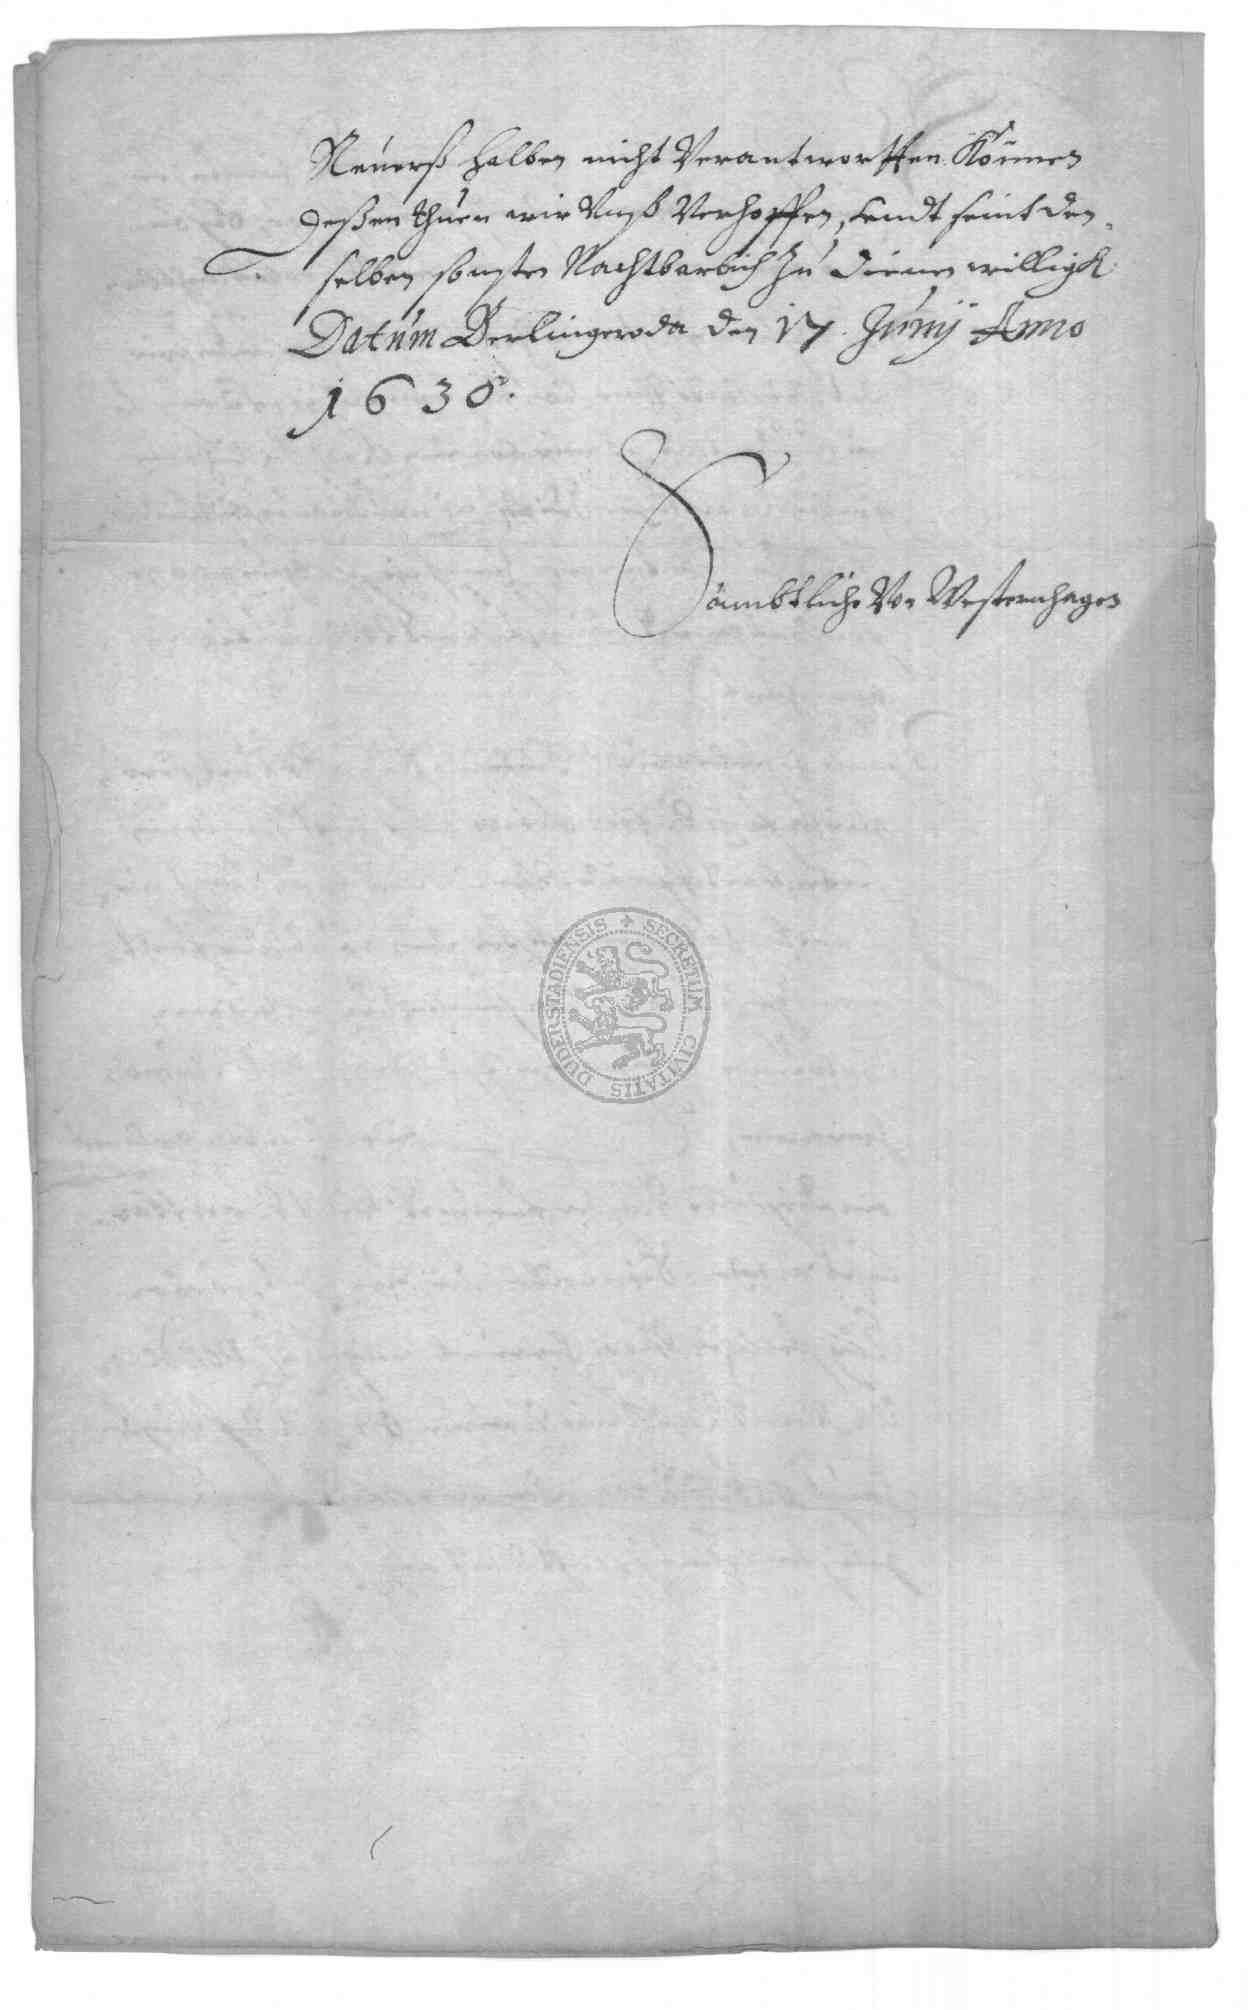 Reuerß halben nicht Verantwortten Können
deßen thuen wir Unß Verhoffen, undt seint den-
selben sonsten Nachtbarlich zu dienen willigk
Datum Berlingeroda den 17. Junij Anno
1630.
Sämbtliche Von Westernhagen
SECRETUM CIVITATIS DUDERSTADIENSIS